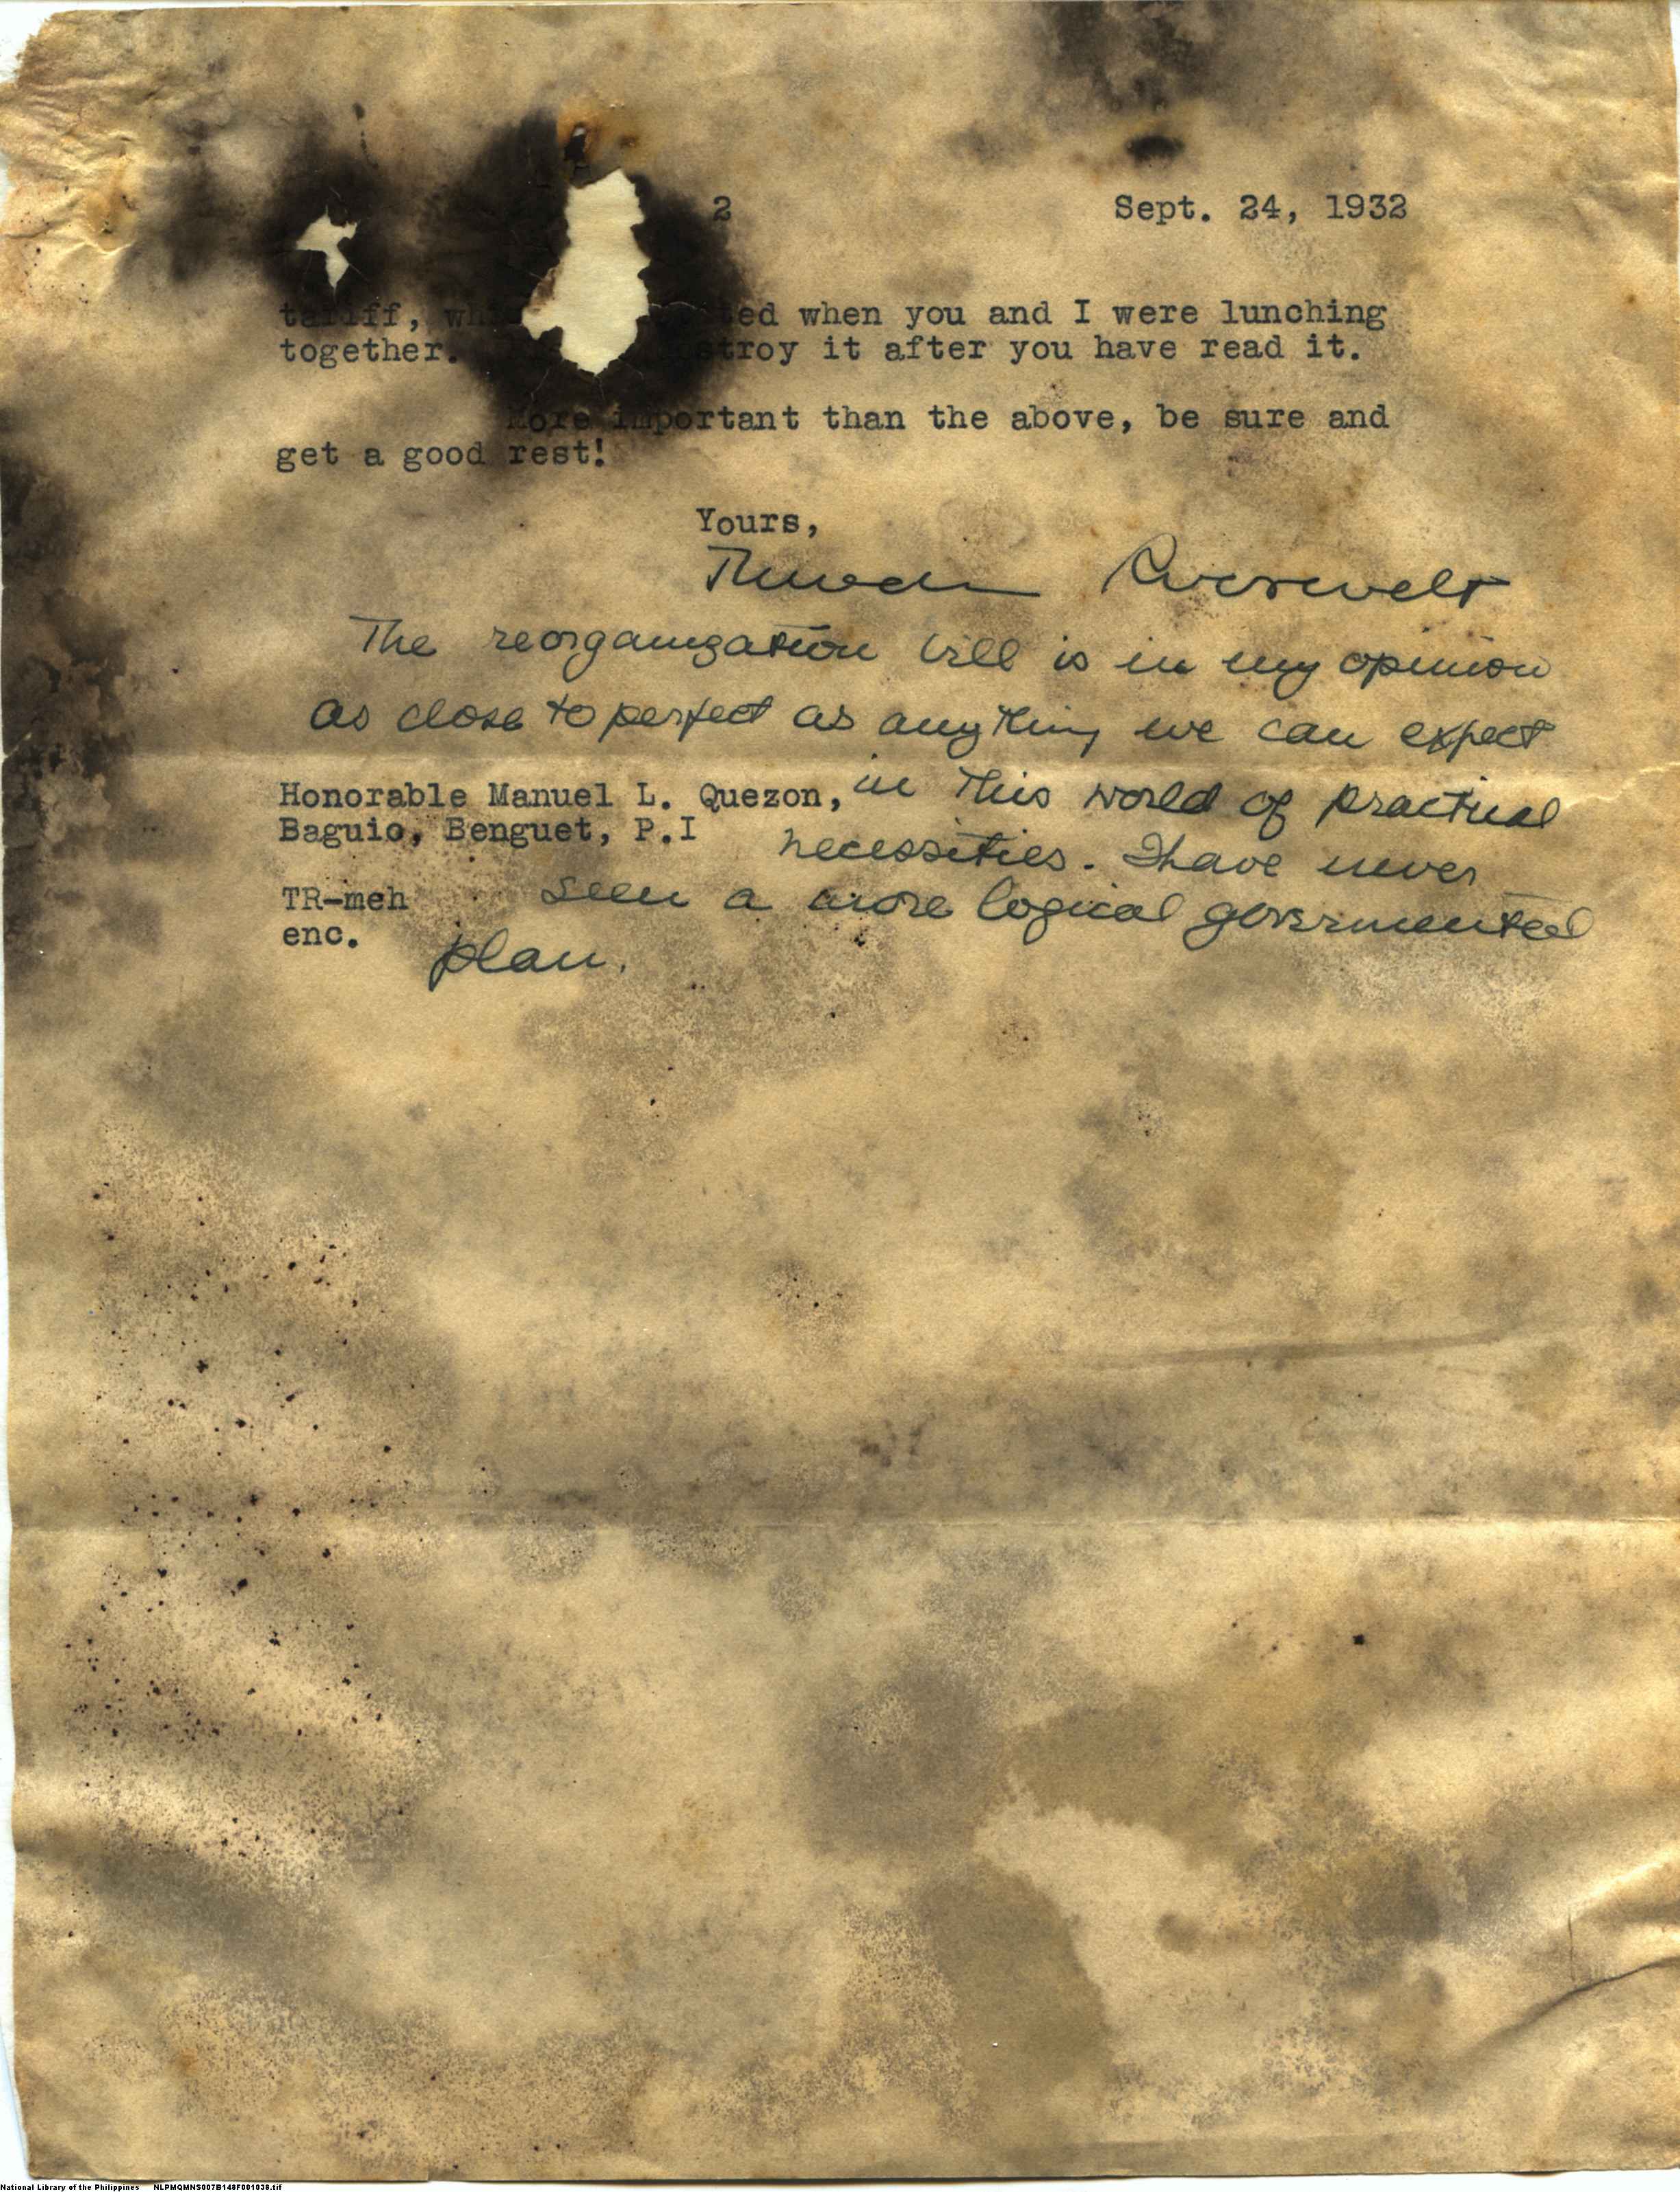 2 Sept. 24, 1932
tariff, when you and I were lunching
together. it after you have read it.
More important than the above, be sure and
get a good rest!
Yours,
Theodore Roosevelt
The reorganization bill is in my opinion
as close to perfect as anything we can expect
in this world of practical
necessities. I have never
seen a more logical governmental
plan.
Honorable Manuel L. Quezon,
Baguio, Benguet, P.I
TR-meh
enc.
National Library of the Philippines NLPMQMNS007B148F001038.tif